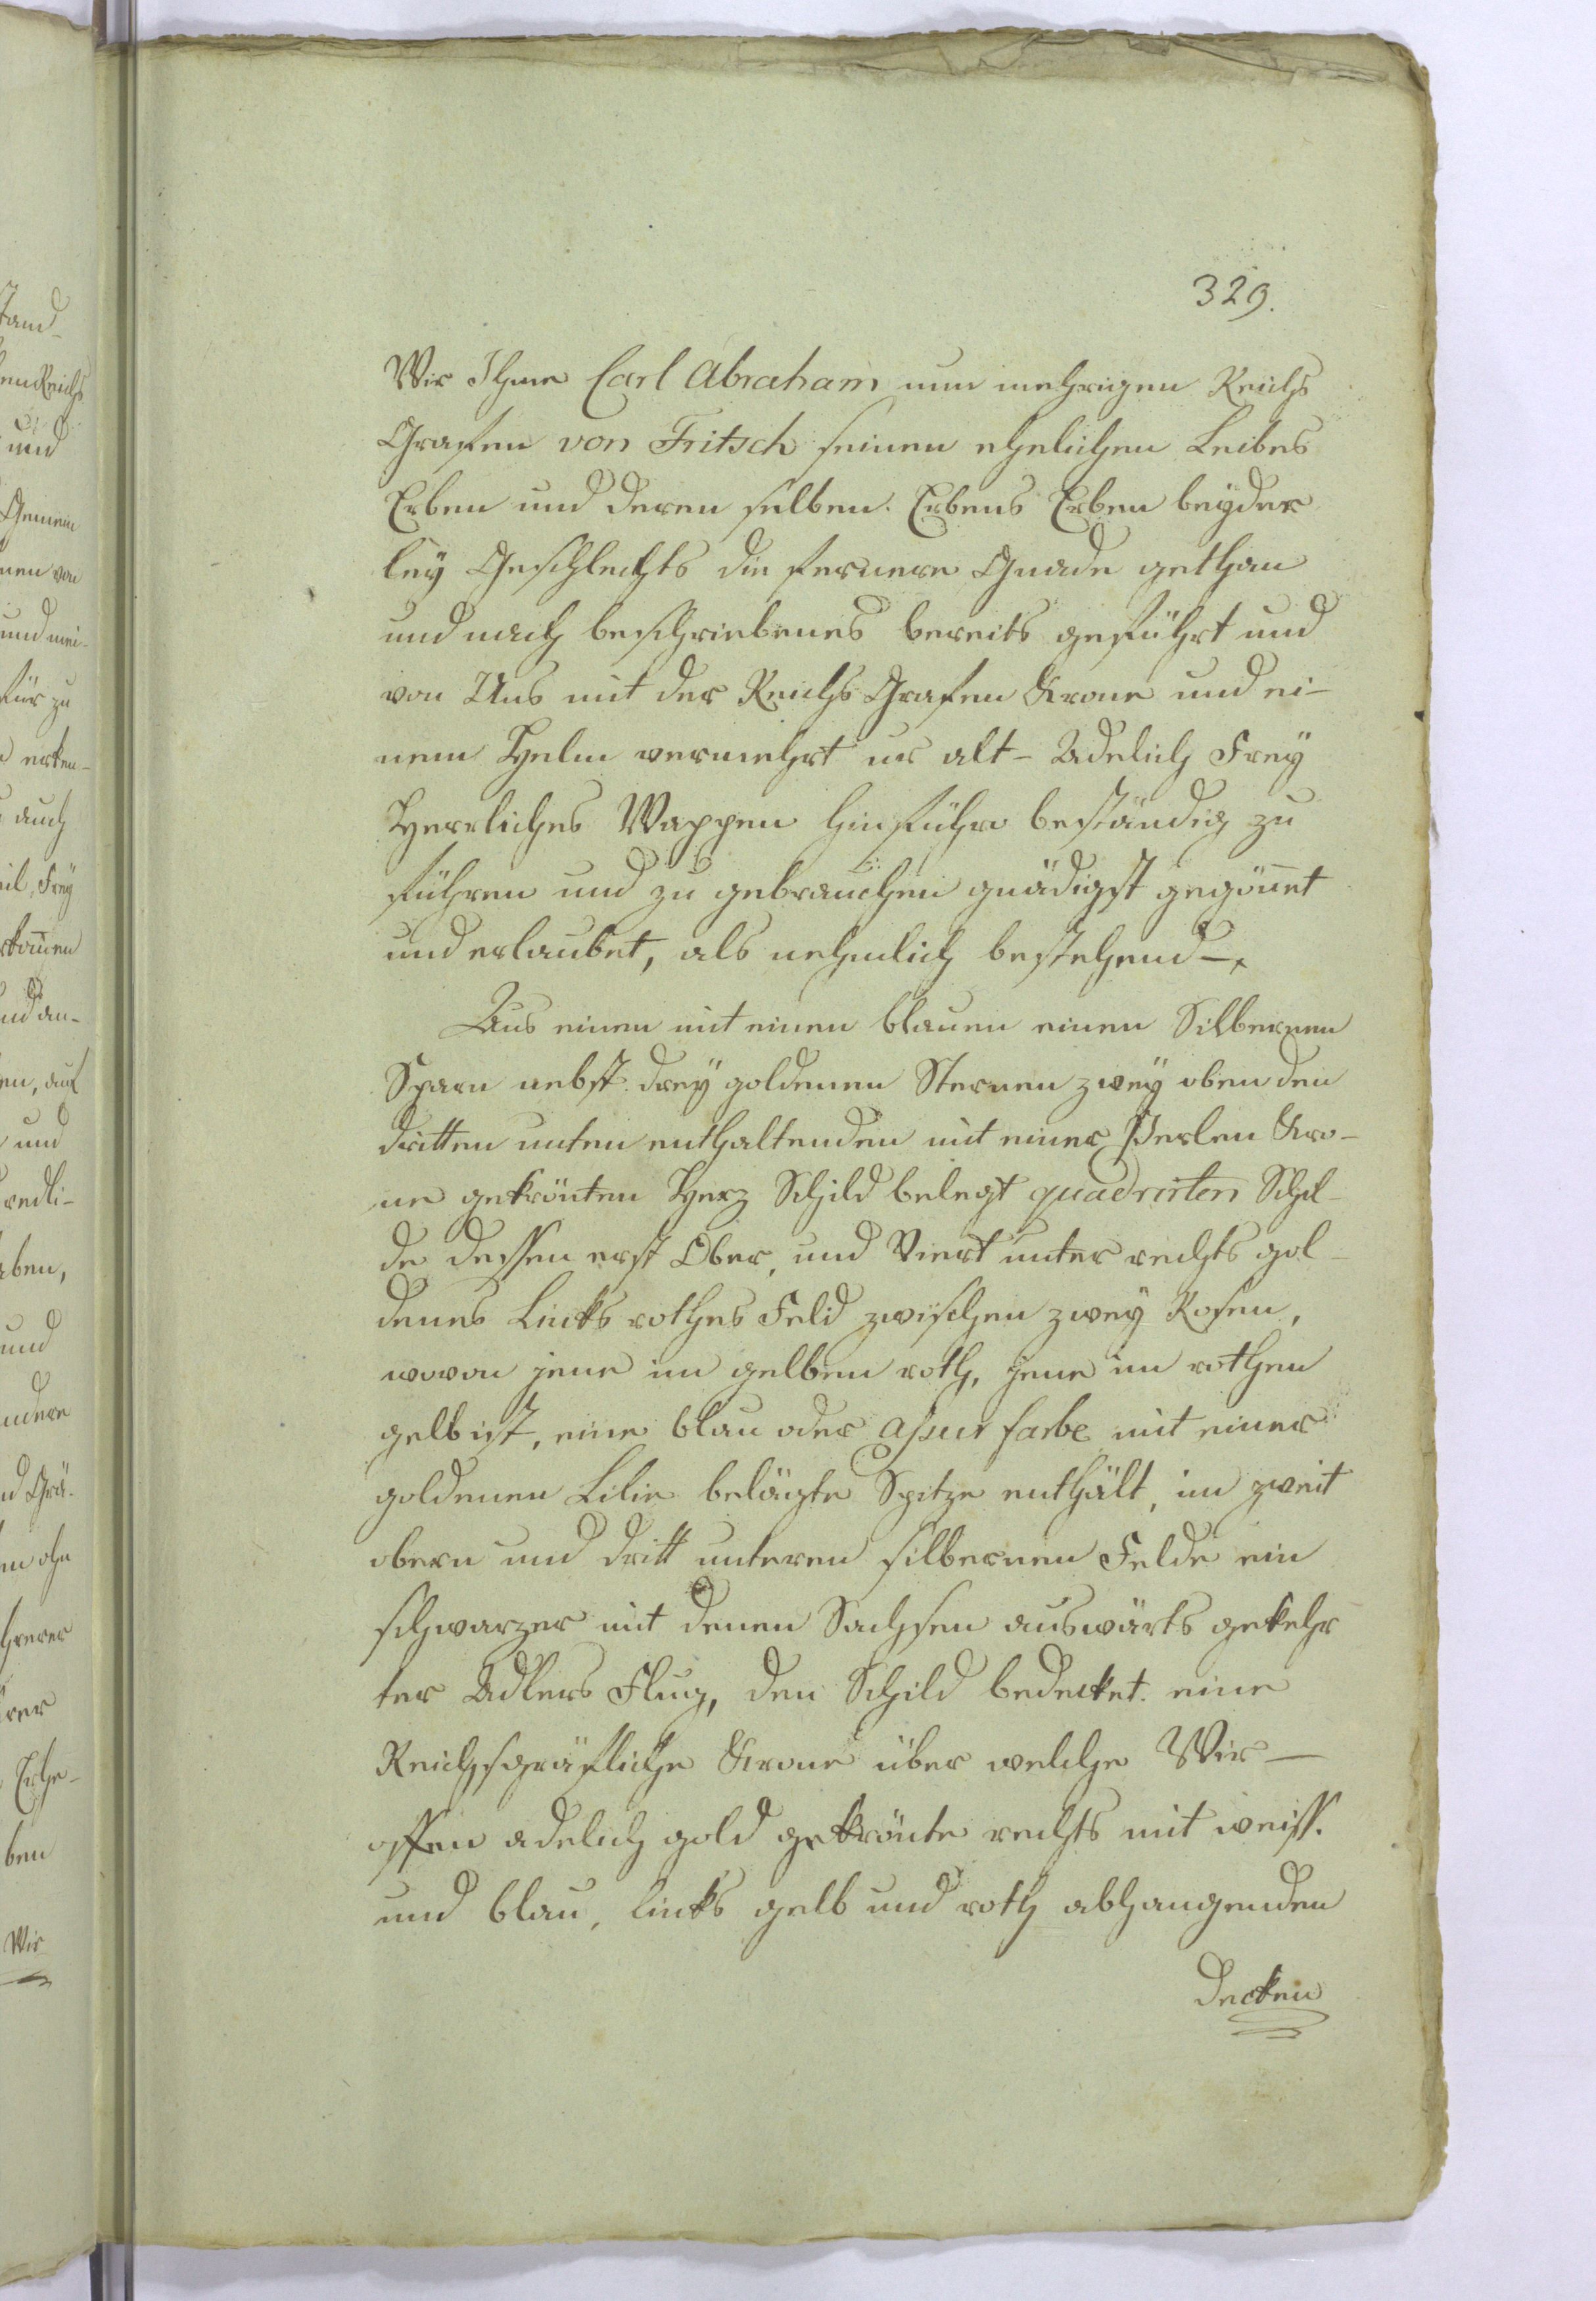 329.
Wir Ihme Carl Abraham nun mehrigen Reichs
Grafen von Fritsch seinen ehelichen Leibes
Erben und deren selben Erbens Erben beyder
ley Geschlechts die fernere Gnade gethan
und nach beschriebenes bereits geführt und
von Uns mit der Reichs Grafen Krone und ei-
nem Helm vermehrt us alt-Adelich Frey
Herrliches Wappen hinführo beständig zu
führen und zu gebrauchen gnädigst gegönnet
und erlaubet, als nehmlich bestehend-
Aus einen mit einen blauen einen Silbernen
Sparn nebst drey goldenen Sternen zwey oben den
dritten unten enthaltenden mit einer Perlen Kro-
ne gekrönten Herz Schild belegt quadrirten Schil-
de dessen erst Ober, und Viert unter rechts gol-
denes Lincks rothes Feld zwischen zwey Rosen,
wovon jene im gelben roth, jene im rothen
gelb ist, eine blau oder asur farbe mit einer
goldenen Lilie belägte Spitze enthält, im zweit
obern und dritt unteren silbernen Felde ein
schwarzer mit denen Sachsen auswärts gekehr
ter Adlers Flug, den Schild bedecket eine
Reichsgräfliche Krone über welche Wir-
offen adelich gold gekrönte rechts mit weiss.
und blau, lincks gelb und roth abhangenden
Decken